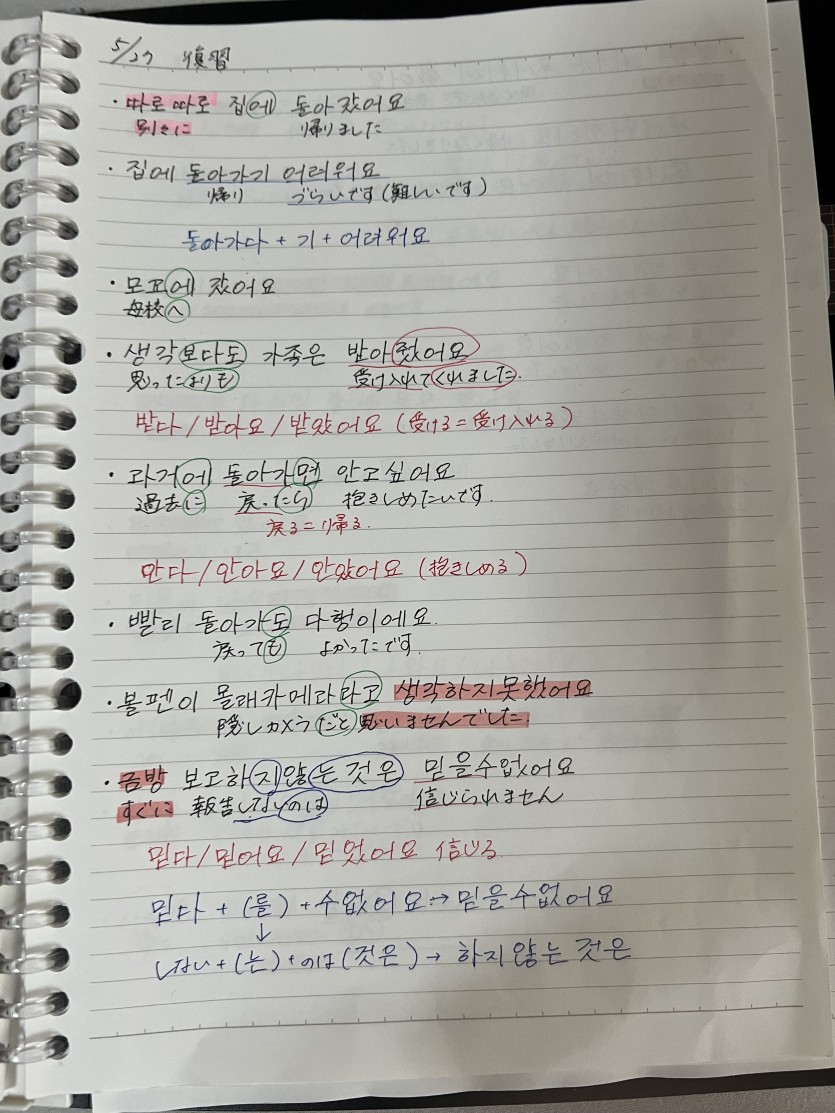 5/27 復習
・따로 따로 집에 돌아갔어요
別々に 帰りました
・집에 돌아가기 어려워요
帰り づらいです(難しいです)
돌아가다 + 기 + 어려워요
・모교에 갔어요
母校へ
・생각보다도 가족은 받아줬어요
思ったよりも 受け入れてくれました.
받다 / 받아요 / 받았어요 (受ける=受け入れる)
・과거에 돌아가면 안고싶어요
過去に 戻ったら 抱きしめたいです.
戻る=帰る.
안다 / 안아요 / 안았어요 (抱きしめる)
・빨리 돌아가도 다행이에요.
戻っても よかったです.
・볼펜이 몰래카메라라고 생각하지못했어요
隠しカメラだと思いませんでした.
・금방 보고하지않는것은 믿을수없어요
すぐに 報告しないのは 信じられません
믿다 / 믿어요 / 믿었어요 信じる
믿다 + (를) + 수없어요→믿을수없어요
↓
しない+(는)+のは(것은) → 하지않는것은